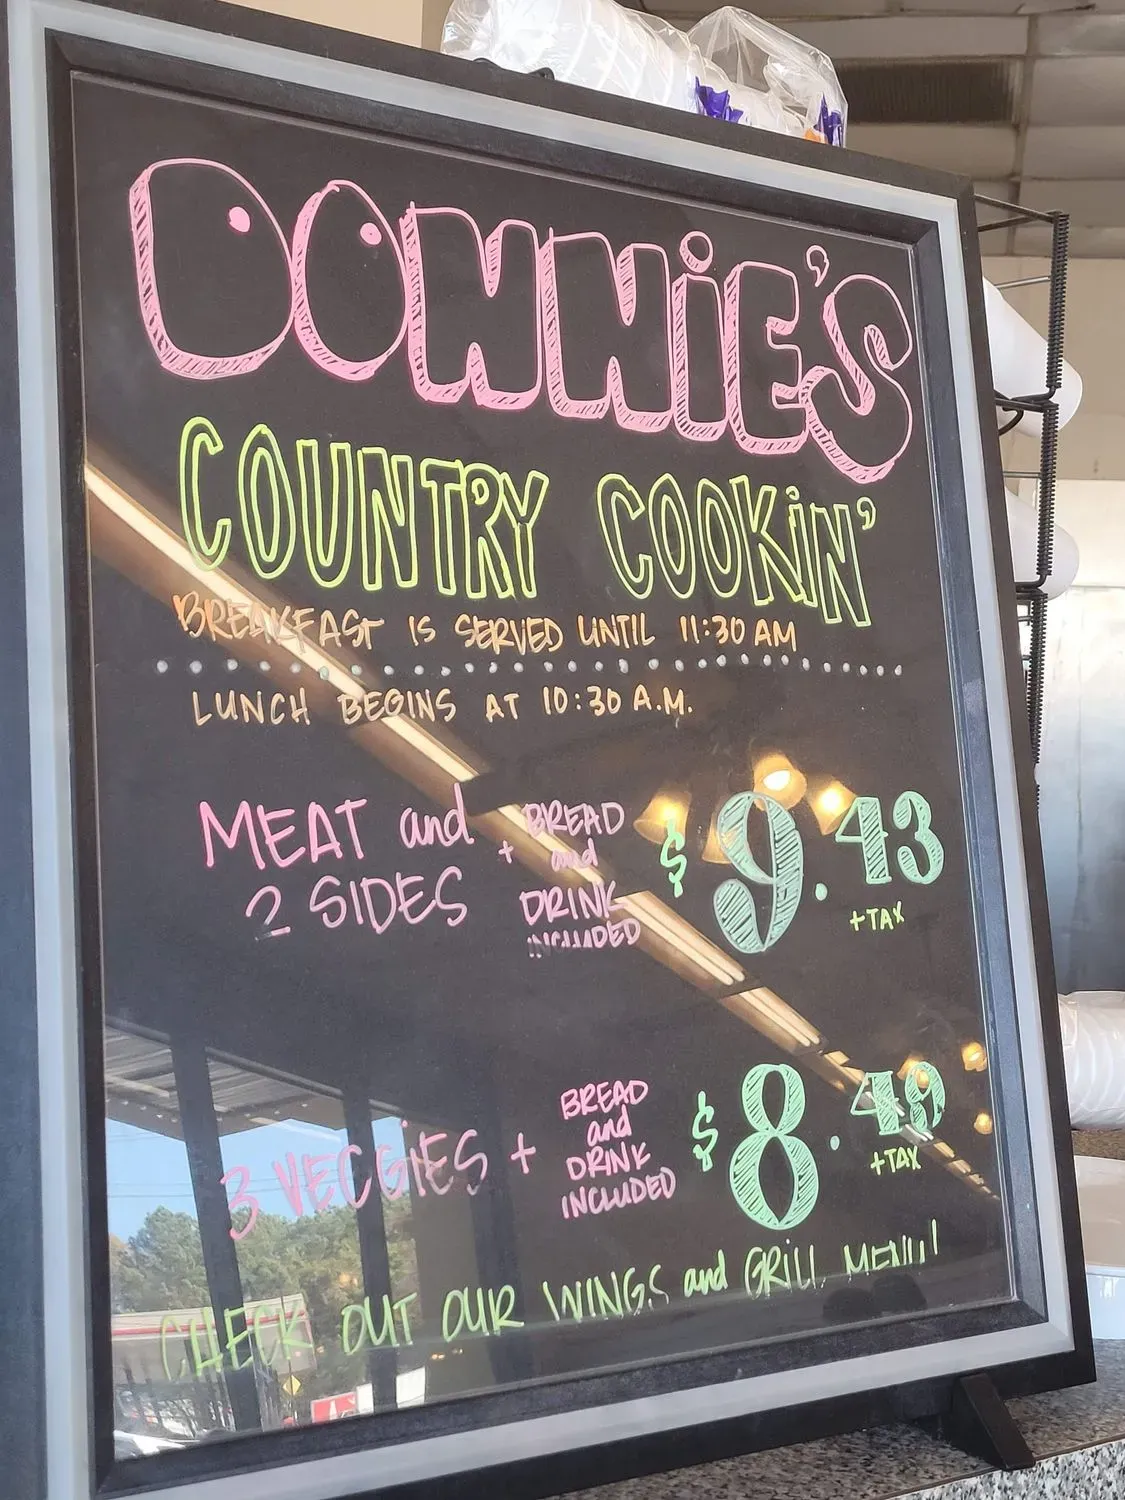 DONNiE'S
COUNTRY COOKiN'
BREAKFAST IS SERVED UNTIL 11:30 AM
LUNCH BEGINS AT 10:30 A.M.
MEAT and
2 SIDES
+
BREAD
and
DRINK
INCLUDED
$9.43
+TAX
3 VEGGiES +
BREAD
and
DRINK
INCLUDED
$8.49
+TAX
CHECK OUT OUR WINGS and GRILL MENU!